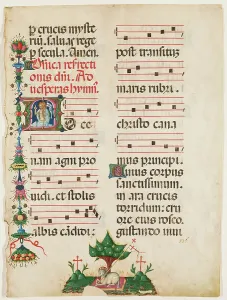 p crucis myste
riũ. salua rege
p secula. Amen.
Dñica resurrecti
onis dñi. Ad
uesperas hymn⁹.
ce
nam agni pro
uidi. et stolis
albis cãdidi:
post transitus
maris rubri.
christo cana
mus principi.
Cuius corpus
sanctissimum.
in ara crucis
torridum: cru
ore eius roseo.
gustando uiui